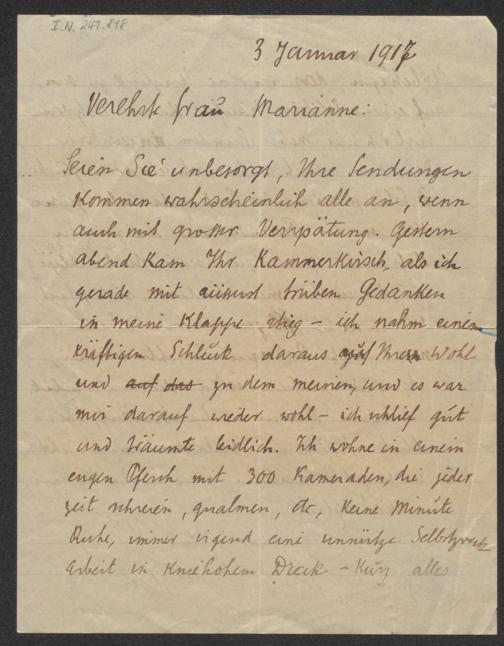 I.N. 241.818
3 Januar 1917
Verehrte Frau Marianne:
Seien Sie unbesorgt, Ihre Sendungen
kommen wahrscheinlich alle an, wenn
auch mit großer Verspätung. Gestern
abend kam Ihr Kammerkirsch, als ich
gerade mit äußerst trüben Gedanken
in meine Klappe stieg – ich nahm einen
kräftigen Schluck daraus auf Ihren Wohl
und auf das zu dem meinen, und es war
mir darauf wieder wohl – ich schlief gut
und träumte leidlich. Ich wohne in einem
engen Pferch mit 300 Kameraden, die jeder
zeit schreien, qualmen, etc, keine Minute
Ruhe, immer irgend eine unnütze Selbstzweck
arbeit in kniehohem Dreck – kurz alles